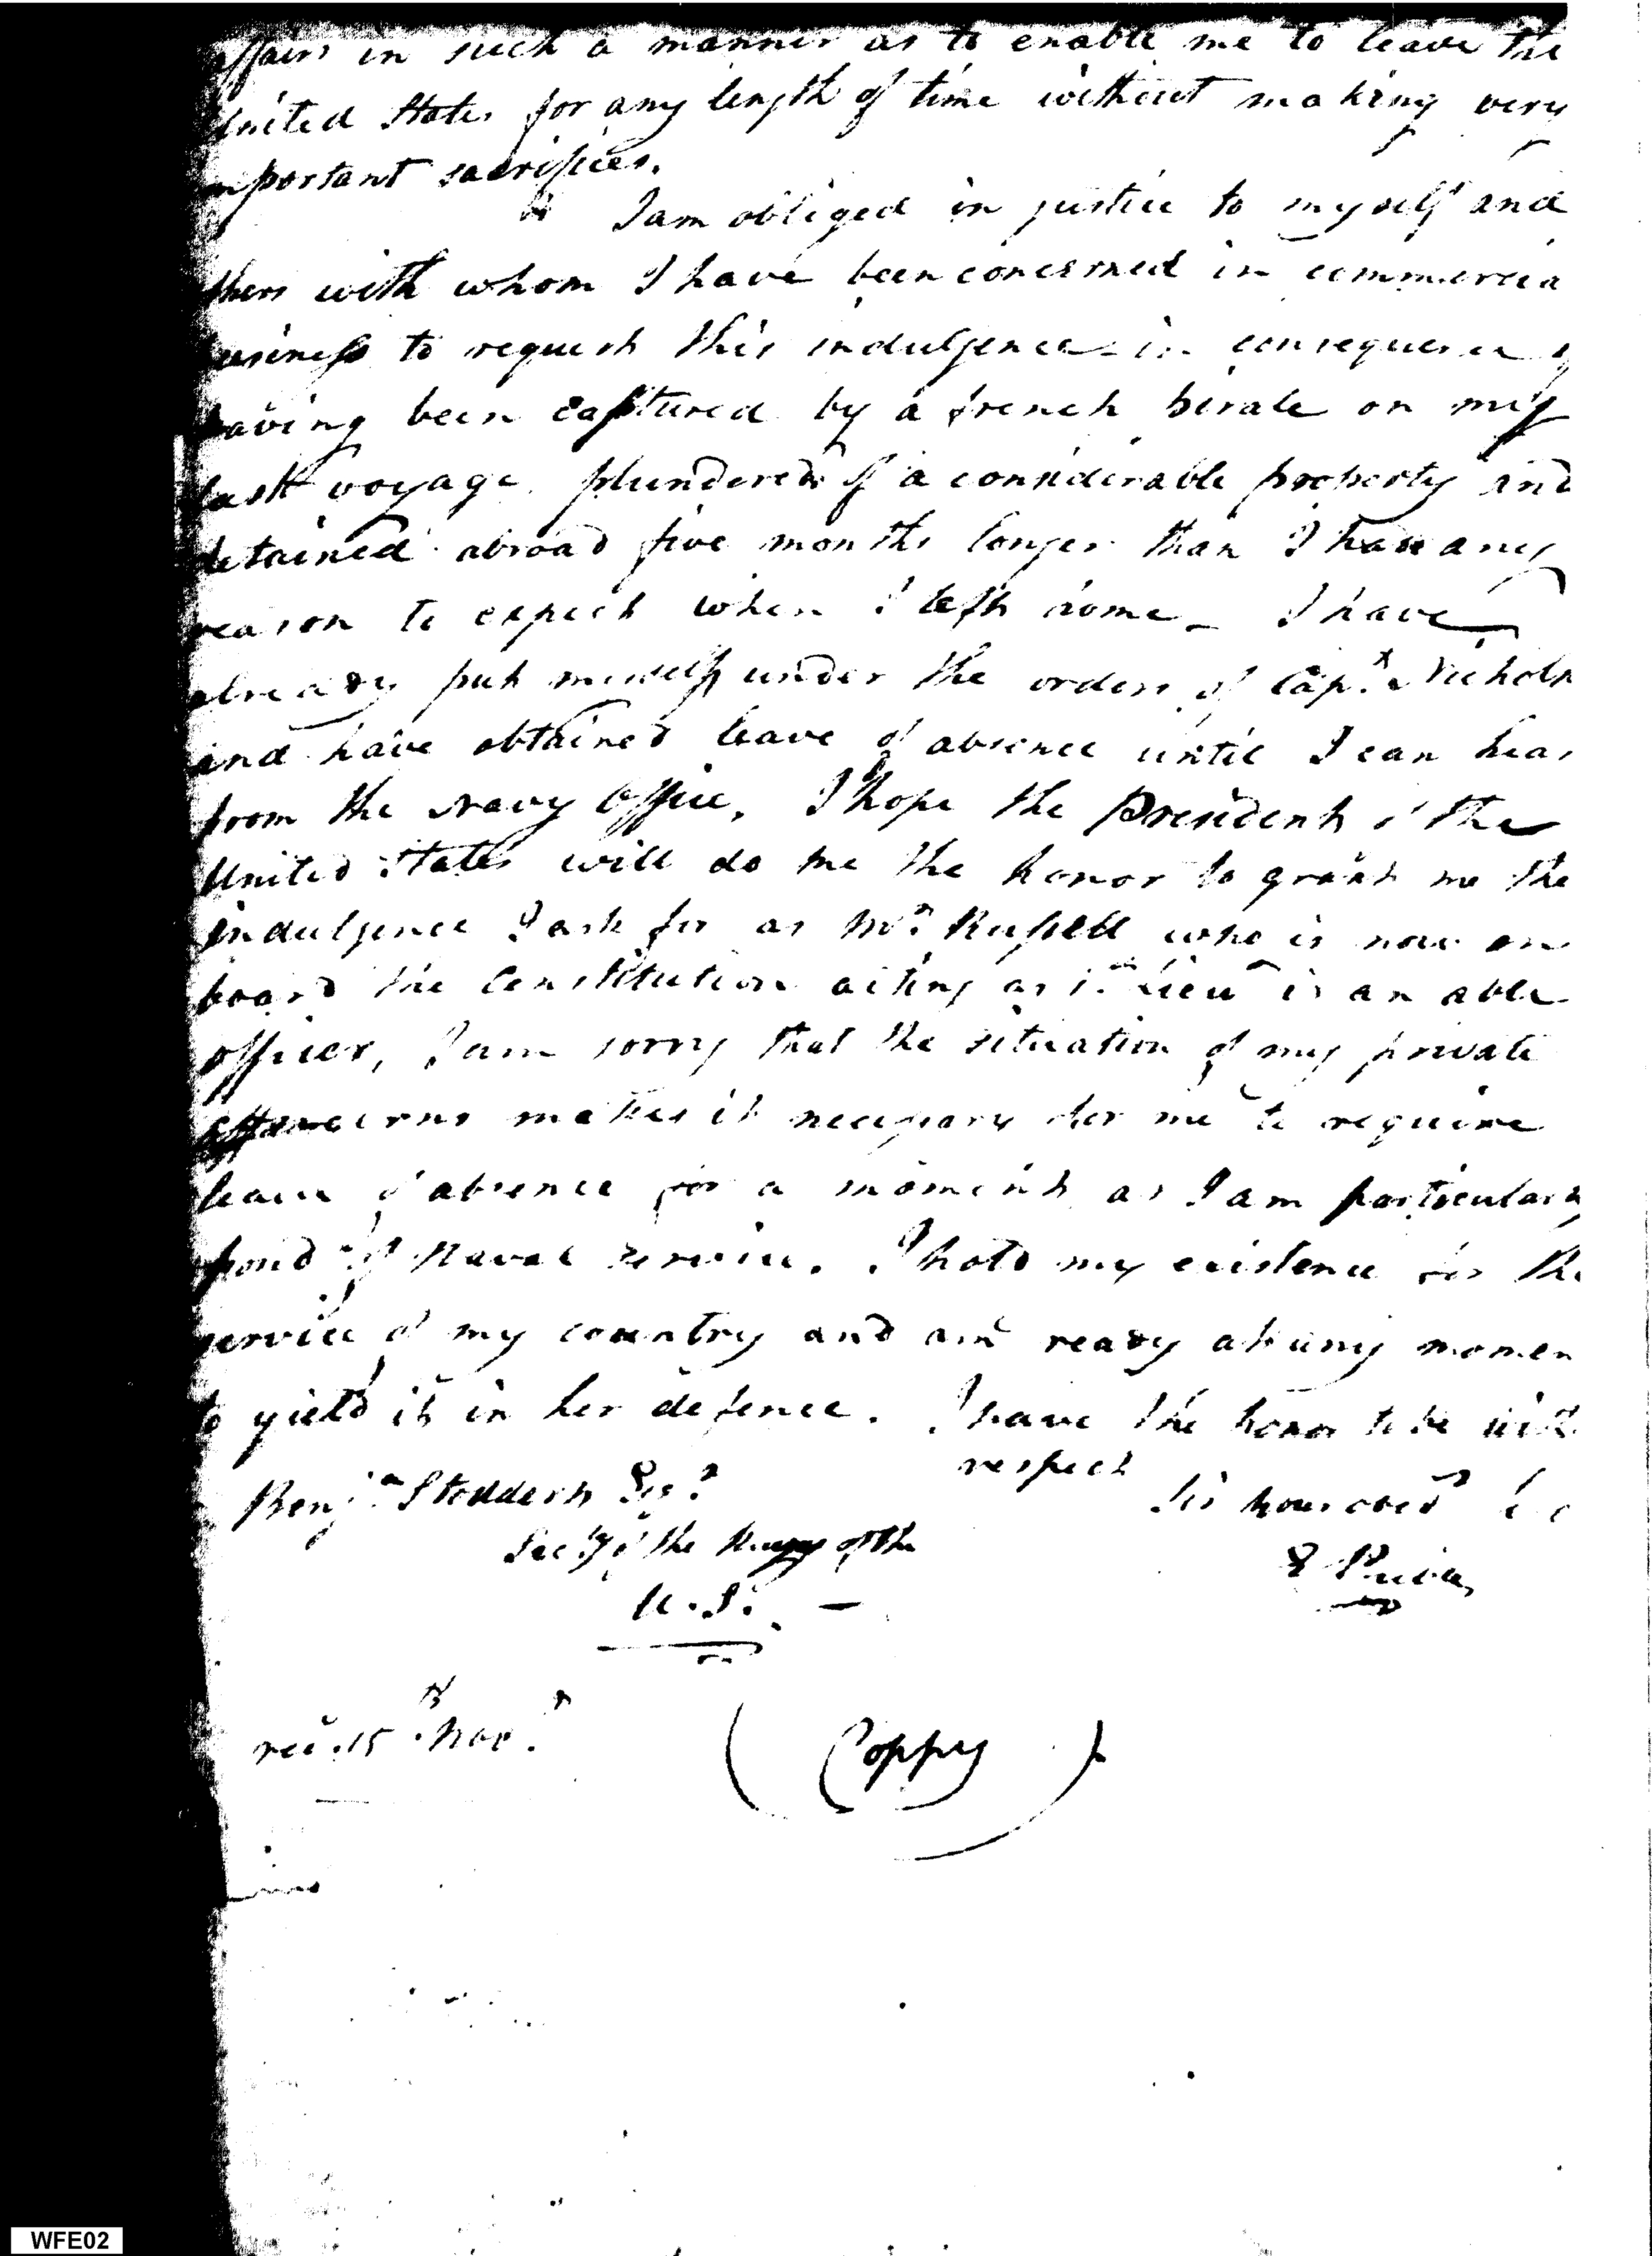 affairs in such a manner as to enable me to leave the
United States for any length of time without making very
important sacrifices.
I am obliged in justice to myself and
others with whom I have been concerned in commercia
business to request this indulgence in consequence of
having been captured by a french pirate on my
last voyage plundered of a considerable property and
detained abroad five months longer than I had any
reason to expect when I left home _ I have
already put myself under the orders of Capt. Nichols
and have obtained leave of absence until I can hear
from the Navy Office. I hope the President of the
United States will do me the honor to grant me the
indulgence I ask for as Mr. Russell who is now on
board the Constitution acting as 1st Lieut is an able
officer, I am sorry that the situation of my private
makes it necessary for me to require
leave of absence for a moment as I am particularly
fond of Naval service. I hold my existence for the
service of my country and am ready at any momen
to yield it in her defence. I have the honor to be with
respect
Benjn. Stoddert Esqr.
Sir your obedt &c
Secty of the Navy of the
U.S. —
rec. 15th Novr.
(Coppy)
WFE02